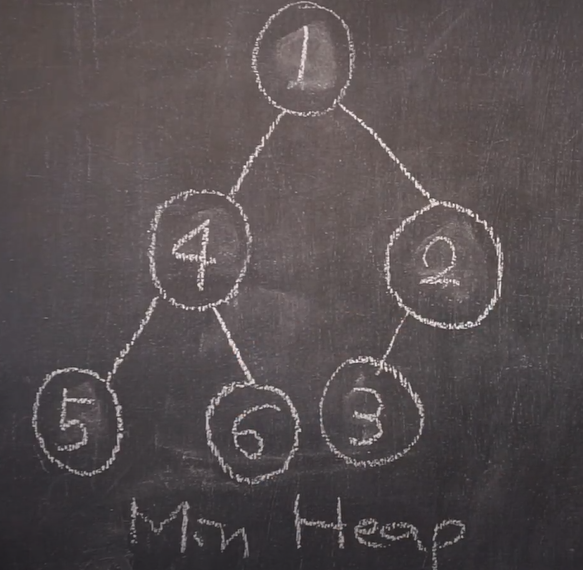 1
4 2
5 6 3
Min Heap